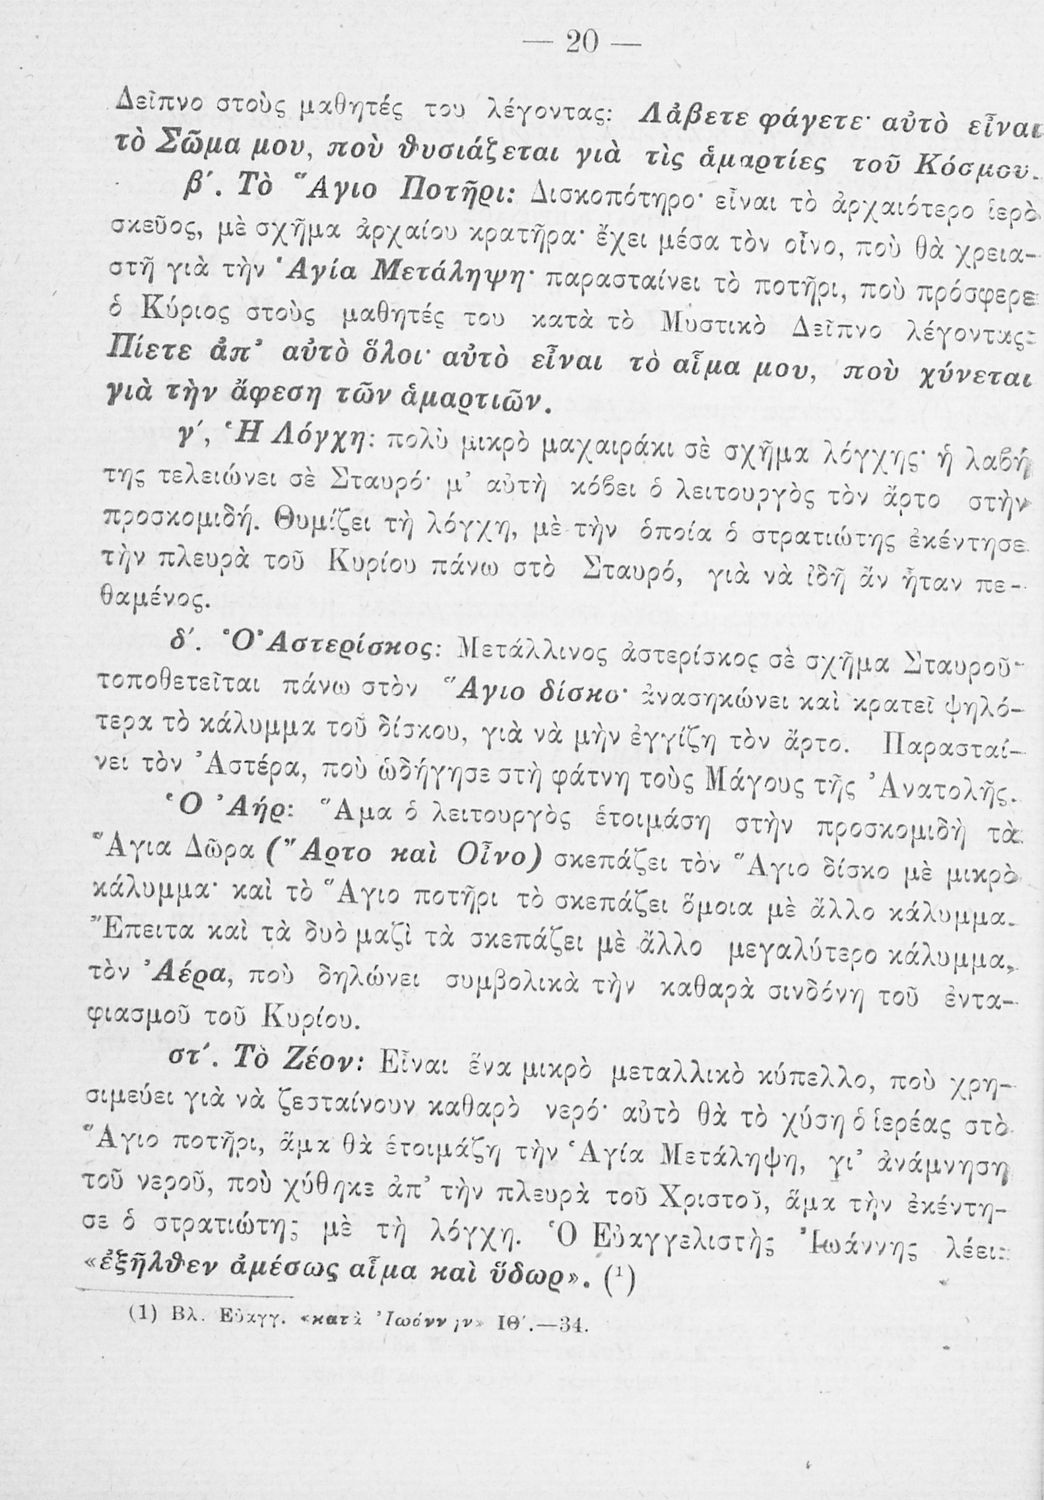 — 20 —
Δεῖπνο στοὺς μαθητές του λέγοντας: Λάβετε φάγετε· αὐτὸ εἶναι
τὸ Σῶμα μου, ποὺ θυσιάζεται γιὰ τὶς ἁμαρτίες τοῦ Κόσμου.
β΄. Τὸ Ἅγιο Ποτῆρι: Δισκοπότηρο· εἶναι τὸ ἀρχαιότερο ἱερὸ
σκεῦος, μὲ σχῆμα ἀρχαίου κρατῆρα· ἔχει μέσα τὸν οἶνο, ποὺ θὰ χρεια-
στῆ γιὰ τὴν Ἁγία Μετάληψη· παρασταίνει τὸ ποτῆρι, ποὺ πρόσφερε
ὁ Κύριος στοὺς μαθητές του κατὰ τὸ Μυστικὸ Δεῖπνο λέγοντας:
Πίετε ἀπ᾿ αὐτὸ ὅλοι· αὐτὸ εἶναι τὸ αἷμα μου, ποὺ χύνεται
γιὰ τὴν ἄφεση τῶν ἁμαρτιῶν.
γ΄, Ἡ Λόγχη: πολὺ μικρὸ μαχαιράκι σὲ σχῆμα λόγχης· ἡ λαβή
της τελειώνει σὲ Σταυρό· μ᾿ αὐτὴ κόβει ὁ λειτουργὸς τὸν ἄρτο στὴν
προσκομιδή. Θυμίζει τὴ λόγχη, μὲ τὴν ὁποία ὁ στρατιώτης ἐκέντησε
τὴν πλευρὰ τοῦ Κυρίου πάνω στὸ Σταυρό, γιὰ νὰ ἰδῆ ἄν ἦταν πε-
θαμένος.
δ΄. Ὁ Ἀστερίσκος: Μετάλλινος ἀστερίσκος σὲ σχῆμα Σταυροῦ·
τοποθετεῖται πάνω στὸν Ἅγιο δίσκο· ἀνασηκώνει καὶ κρατεῖ ψηλό-
τερα τὸ κάλυμμα τοῦ δίσκου, γιὰ νὰ μὴν ἐγγίζη τὸν ἄρτο. Παρασταί-
νει τὸν Ἀστέρα, ποὺ ὡδήγησε στὴ φάτνη τοὺς Μάγους τῆς Ἀνατολῆς.
Ὁ Ἀήρ: Ἅμα ὁ λειτουργὸς ἑτοιμάση στὴν προσκομιδὴ τὰ
Ἅγια Δῶρα (Ἄρτο καὶ Οἶνο) σκεπάζει τὸν Ἅγιο δίσκο μὲ μικρὸ
κάλυμμα· καὶ τὸ Ἅγιο ποτῆρι τὸ σκεπάζει ὅμοια μὲ ἄλλο κάλυμμα.
Ἔπειτα καὶ τὰ δυὸ μαζὶ τὰ σκεπάζει μὲ ἄλλο μεγαλύτερο κάλυμμα,
τὸν Ἀέρα, ποὺ δηλώνει συμβολικὰ τὴν καθαρὰ σινδόνη τοῦ ἐντα-
φιασμοῦ τοῦ Κυρίου.
στ΄. Τὸ Ζέον: Εἶναι ἕνα μικρὸ μεταλλικὸ κύπελλο, ποὺ χρη-
σιμεύει γιὰ νὰ ζεσταίνουν καθαρὸ νερό· αὐτὸ θὰ τὸ χύση ὁ ἱερέας στὸ
Ἅγιο ποτῆρι, ἅμα θὰ ἑτοιμάζη τὴν Ἁγία Μετάληψη, γι᾿ ἀνάμνηση
τοῦ νεροῦ, ποὺ χύθηκε ἀπ᾿ τὴν πλευρὰ τοῦ Χριστοῦ, ἅμα τὴν ἐκέντη-
σε ὁ στρατιώτης μὲ τὴ λόγχη. Ὁ Εὐαγγελιστὴς Ἰωάννης λέει:
«ἐξῆλθεν ἀμέσως αἷμα καὶ ὕδωρ». (¹)
(1) Βλ. Εὐαγγ. «κατὰ Ἰωάννην» ΙΘ΄.—34.